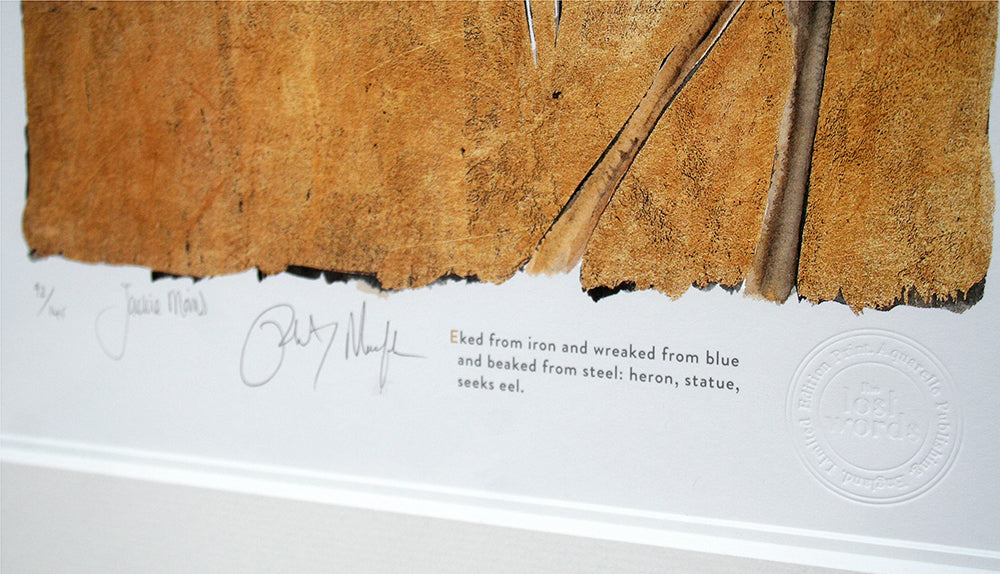 Jackie Morris
Eked from iron and wreaked from blue
and beaked from steel: heron, statue,
seeks eel.
Limited Edition Print. Aquarelle Publishing. England.
The
lost
words